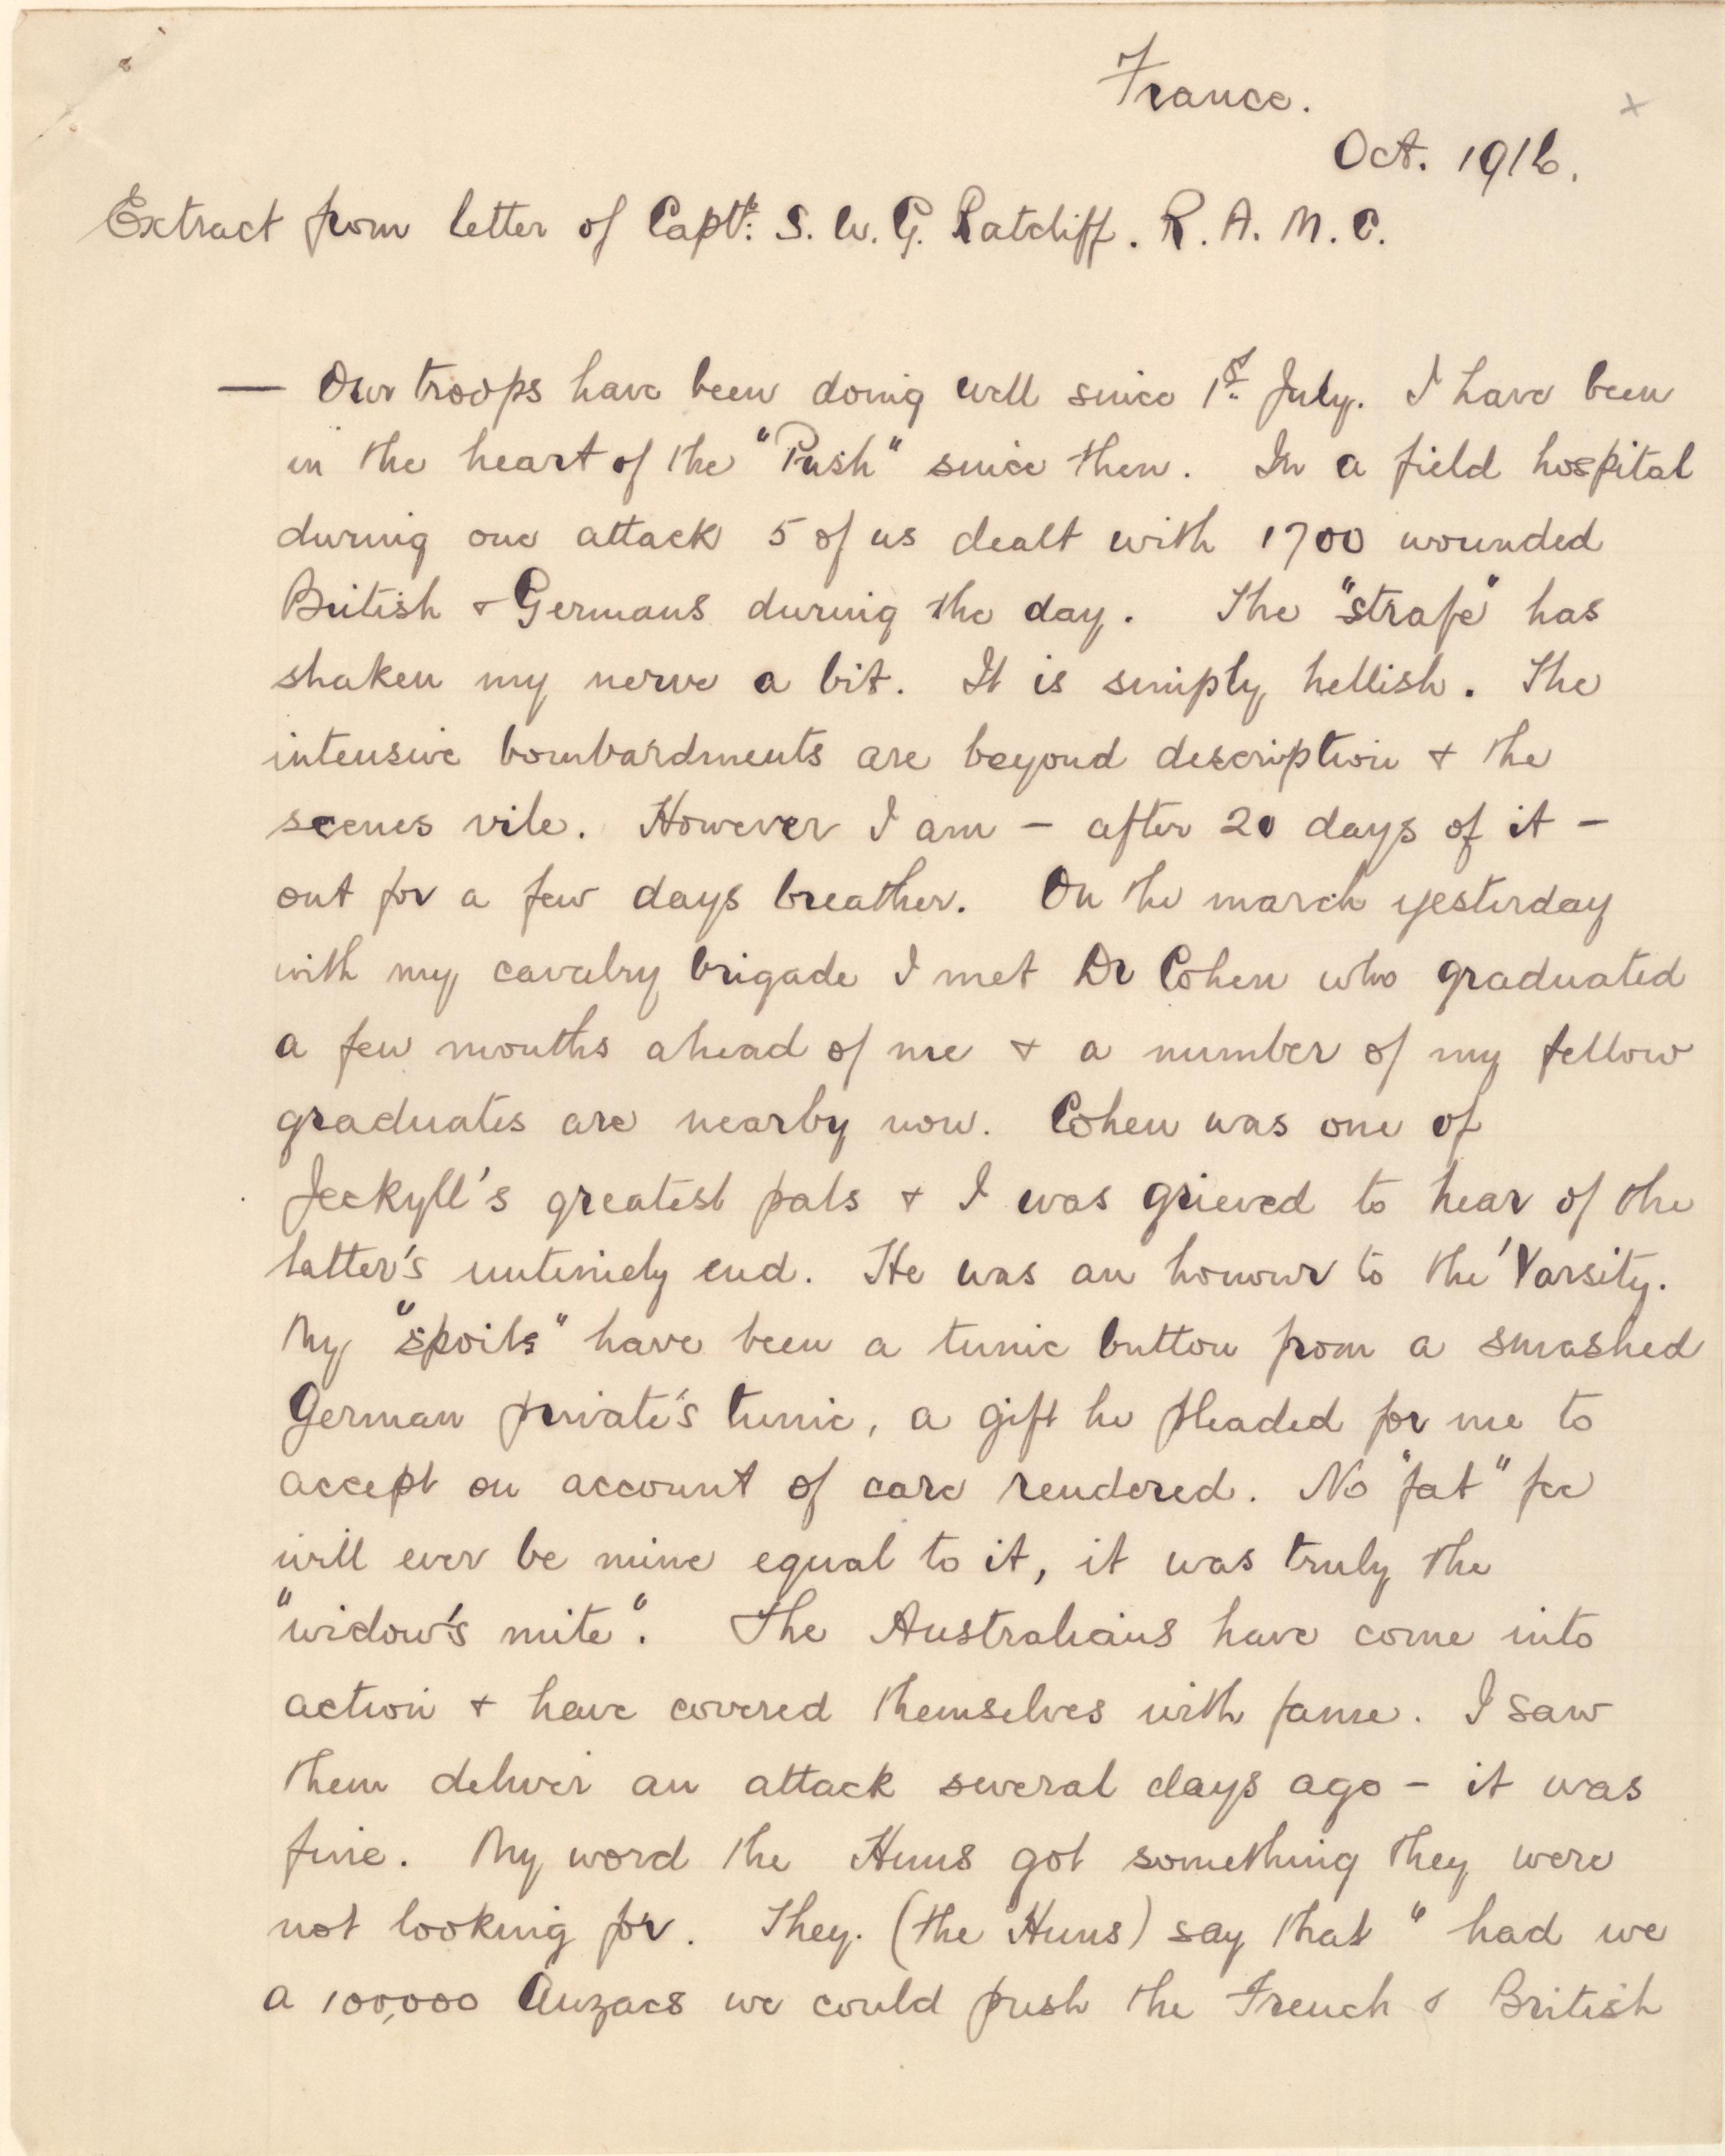 France.
Oct. 1916.
Extract from letter of Captn: S. W. G. Ratcliff. R. A. M. C.
— Our troops have been doing well since 1st July. I have been
in the heart of the "Push" since then. In a field hospital
during one attack 5 of us dealt with 1700 wounded
British & Germans during the day. The "strafe" has
shaken my nerve a bit. It is simply hellish. The
intensive bombardments are beyond description & the
scenes vile. However I am – after 20 days of it –
out for a few days breather. On the march yesterday
with my cavalry brigade I met Dr Cohen who graduated
a few months ahead of me & a number of my fellow
graduates are nearby now. Cohen was one of
Jeckyll's greatest pals & I was grieved to hear of the
latter's untimely end. He was an honour to the 'Varsity.
My "spoils" have been a tunic button from a smashed
German private's tunic, a gift he pleaded for me to
accept on account of care rendered. No "fat" fee
will ever be mine equal to it, it was truly the
"widow's mite". The Australians have come into
action & have covered themselves with fame. I saw
them deliver an attack several days ago – it was
fine. My word the Huns got something they were
not looking for. They. (the Huns) say that " had we
a 100,000 Anzacs we could push the French & British